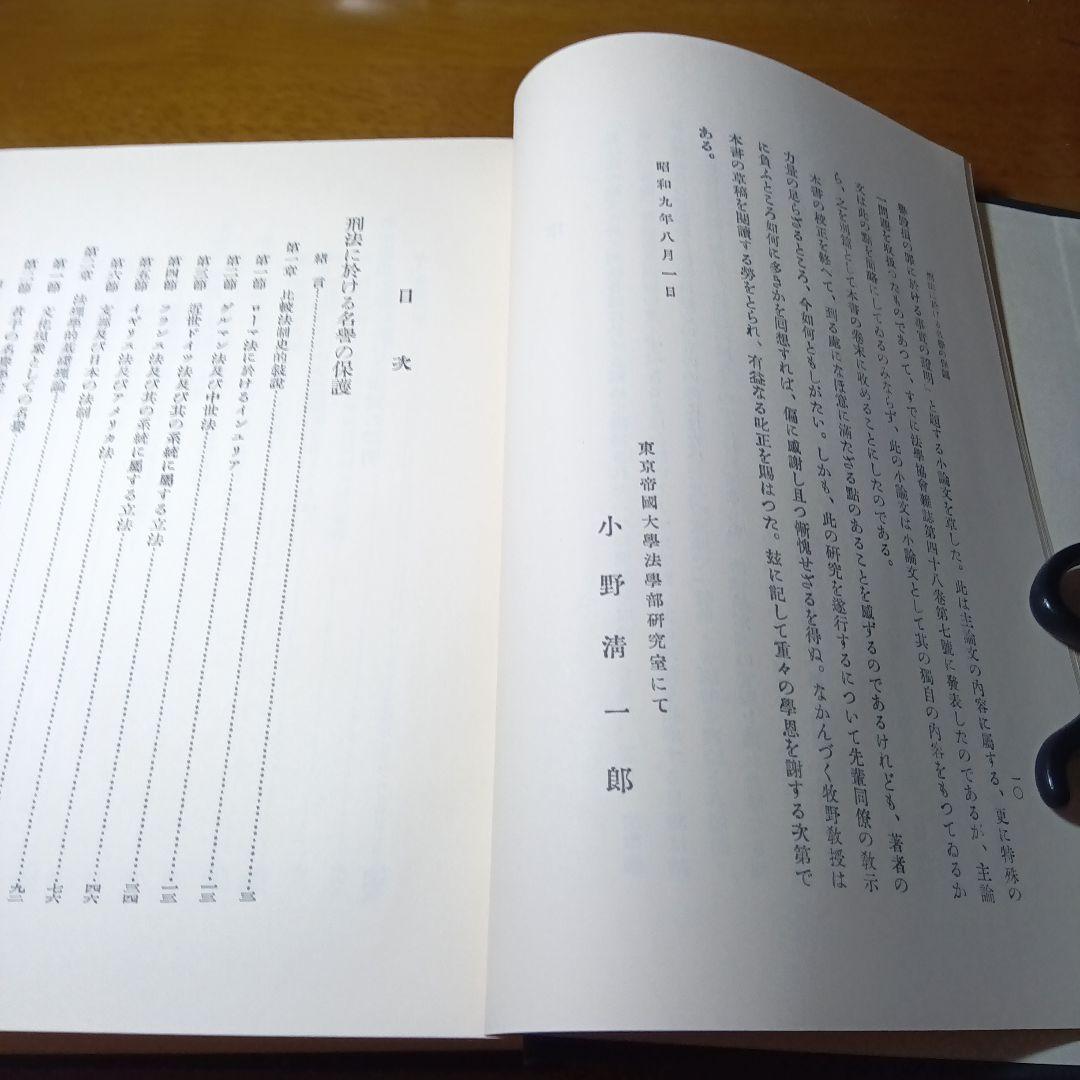 刑法に於ける名譽の保護
一〇
譽毀損の罪に於ける事實の證明」と題する小論文を草した。此は主論文の內容に屬する、更に特殊の
一問題を取扱つたものであつて、すでに法學協會雜誌第四十八卷第七號に發表したのであるが、主論
文は此の點を簡略にしてゐるのみならず、此の小論文は小論文として其の獨自の內容をもつてゐるか
ら、之を別篇として本書の卷末に收めることにしたのである。
本書の校正を終へて、到る處になほ意に滿たざる點のあることを感ずるのであるけれども、著者の
力量の足らざるところ、今如何ともしがたい。しかも、此の研究を遂行するについて先輩同僚の敎示
に負ふところ如何に多きかを回想すれば、偏に感謝し且つ慚愧せざるを得ぬ。なかんづく牧野敎授は
本書の草稿を閱讀する勞をとられ、有益なる叱正を賜はつた。玆に記して重々の學恩を謝する次第で
ある。
昭和九年八月一日
東京帝國大學法學部硏究室にて
小野淸一郞
目次
刑法に於ける名譽の保護
緖言
第一章 比較法制史的敍說 三
第一節 ローマ法に於けるインユリア 三
第二節 ゲルマン法及び中世法 一三
第三節 近世ドイツ法及び其の系統に屬する立法
第四節 フランス法及び其の系統に屬する立法
第五節 イギリス法及びアメリカ法 三四
第六節 支那及び日本の法制 四六
第二章 法理學的基礎理論 七六
第一節 文化現象としての名譽
第二節 名譽 九二